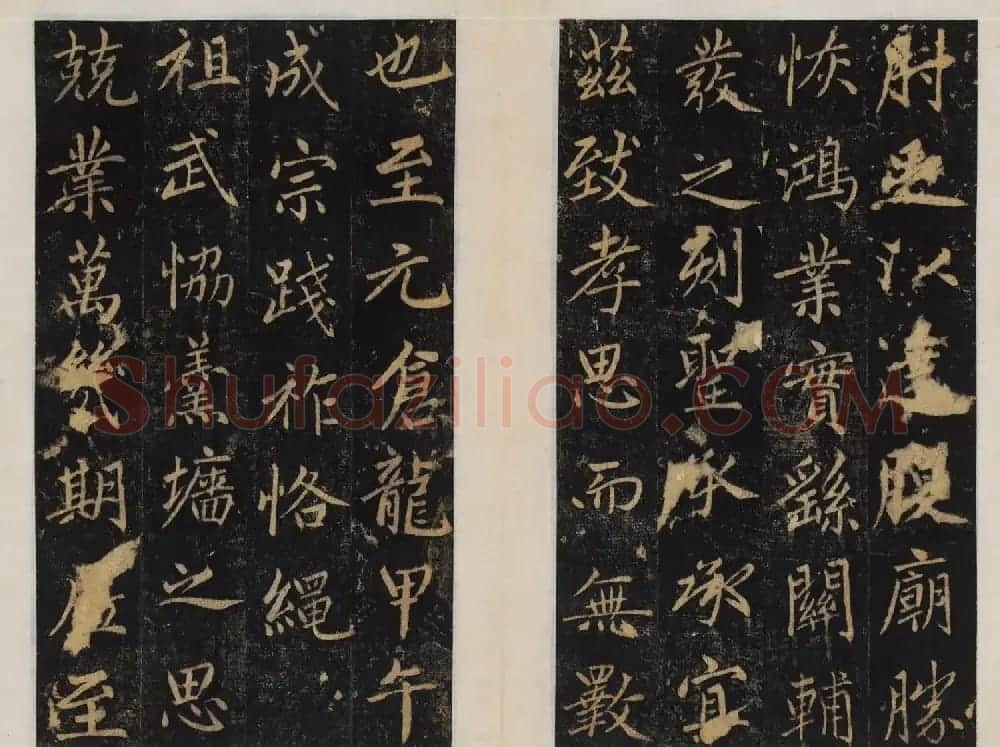 肘以達廟勝
恢鴻業實繇關輔
發之列聖承承宜
茲致孝思而無斁
也至元倉龍甲午
成宗踐祚恪繩
祖武協羹墻之思
兢業萬幾期至
Shufaziliao.COM